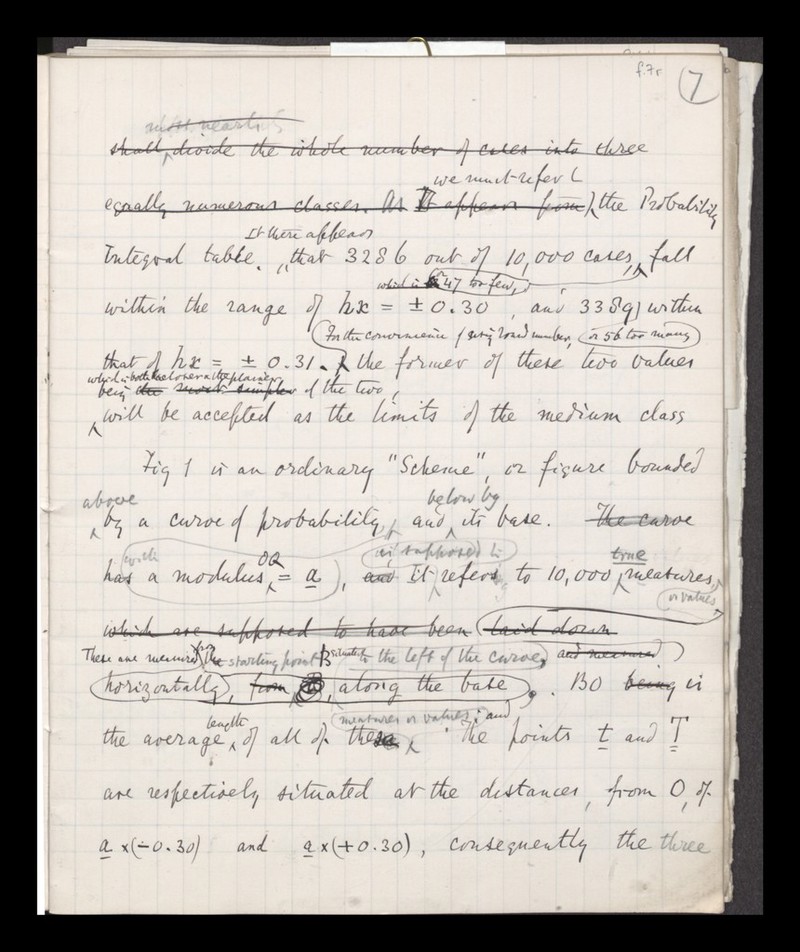 f.7r
7
most nearly
shall, divide the whole number of cases into three
we must refer to
equally numerous classes. As It appears from the Probability
It there appears
Integral table. that 3286 out of 10,000 cases, fall
which is 47 too few,
within the range of hx = ± 0.30, and 3389 within
For the convenience of using round numbers, or 56 too many
that of hx = ± 0.31. the former of these two values
which is both the lower & the plainer
being the more simpler of the two,
will be accepted as the limits of the medium class
Fig 1 is an ordinary "Scheme", or figure bounded
above below by
by a curve of probability, and its base. The curve
with OQ is supposed to true
has a modulus = a, and It refers to 10,000 measures,
or values
which are supposed to have been laid down
These are measured from the starting point B situated to the left of the curve, and measured
horizontally, from, along the base. BO being is
length measures or values; and
the average, of all of these the points t and T
are respectively situated at the distances, from O, of
a x(-0.30) and a x(+0.30), consequently the three